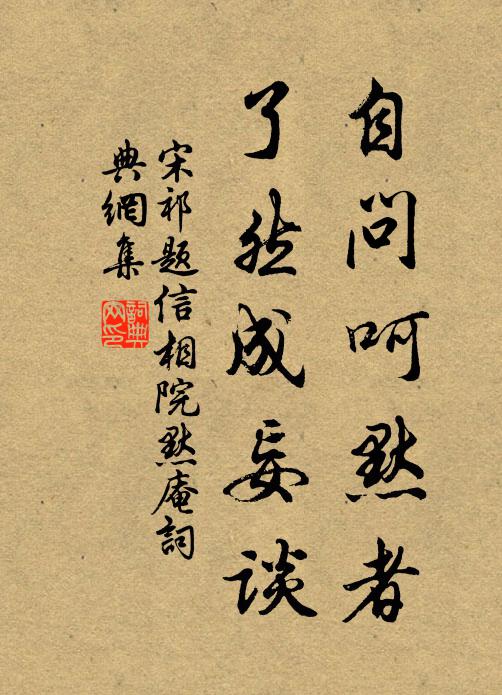 自问呵默者
了然成妄谈
宋祁题信相院默庵词
典網集
詞典
网印